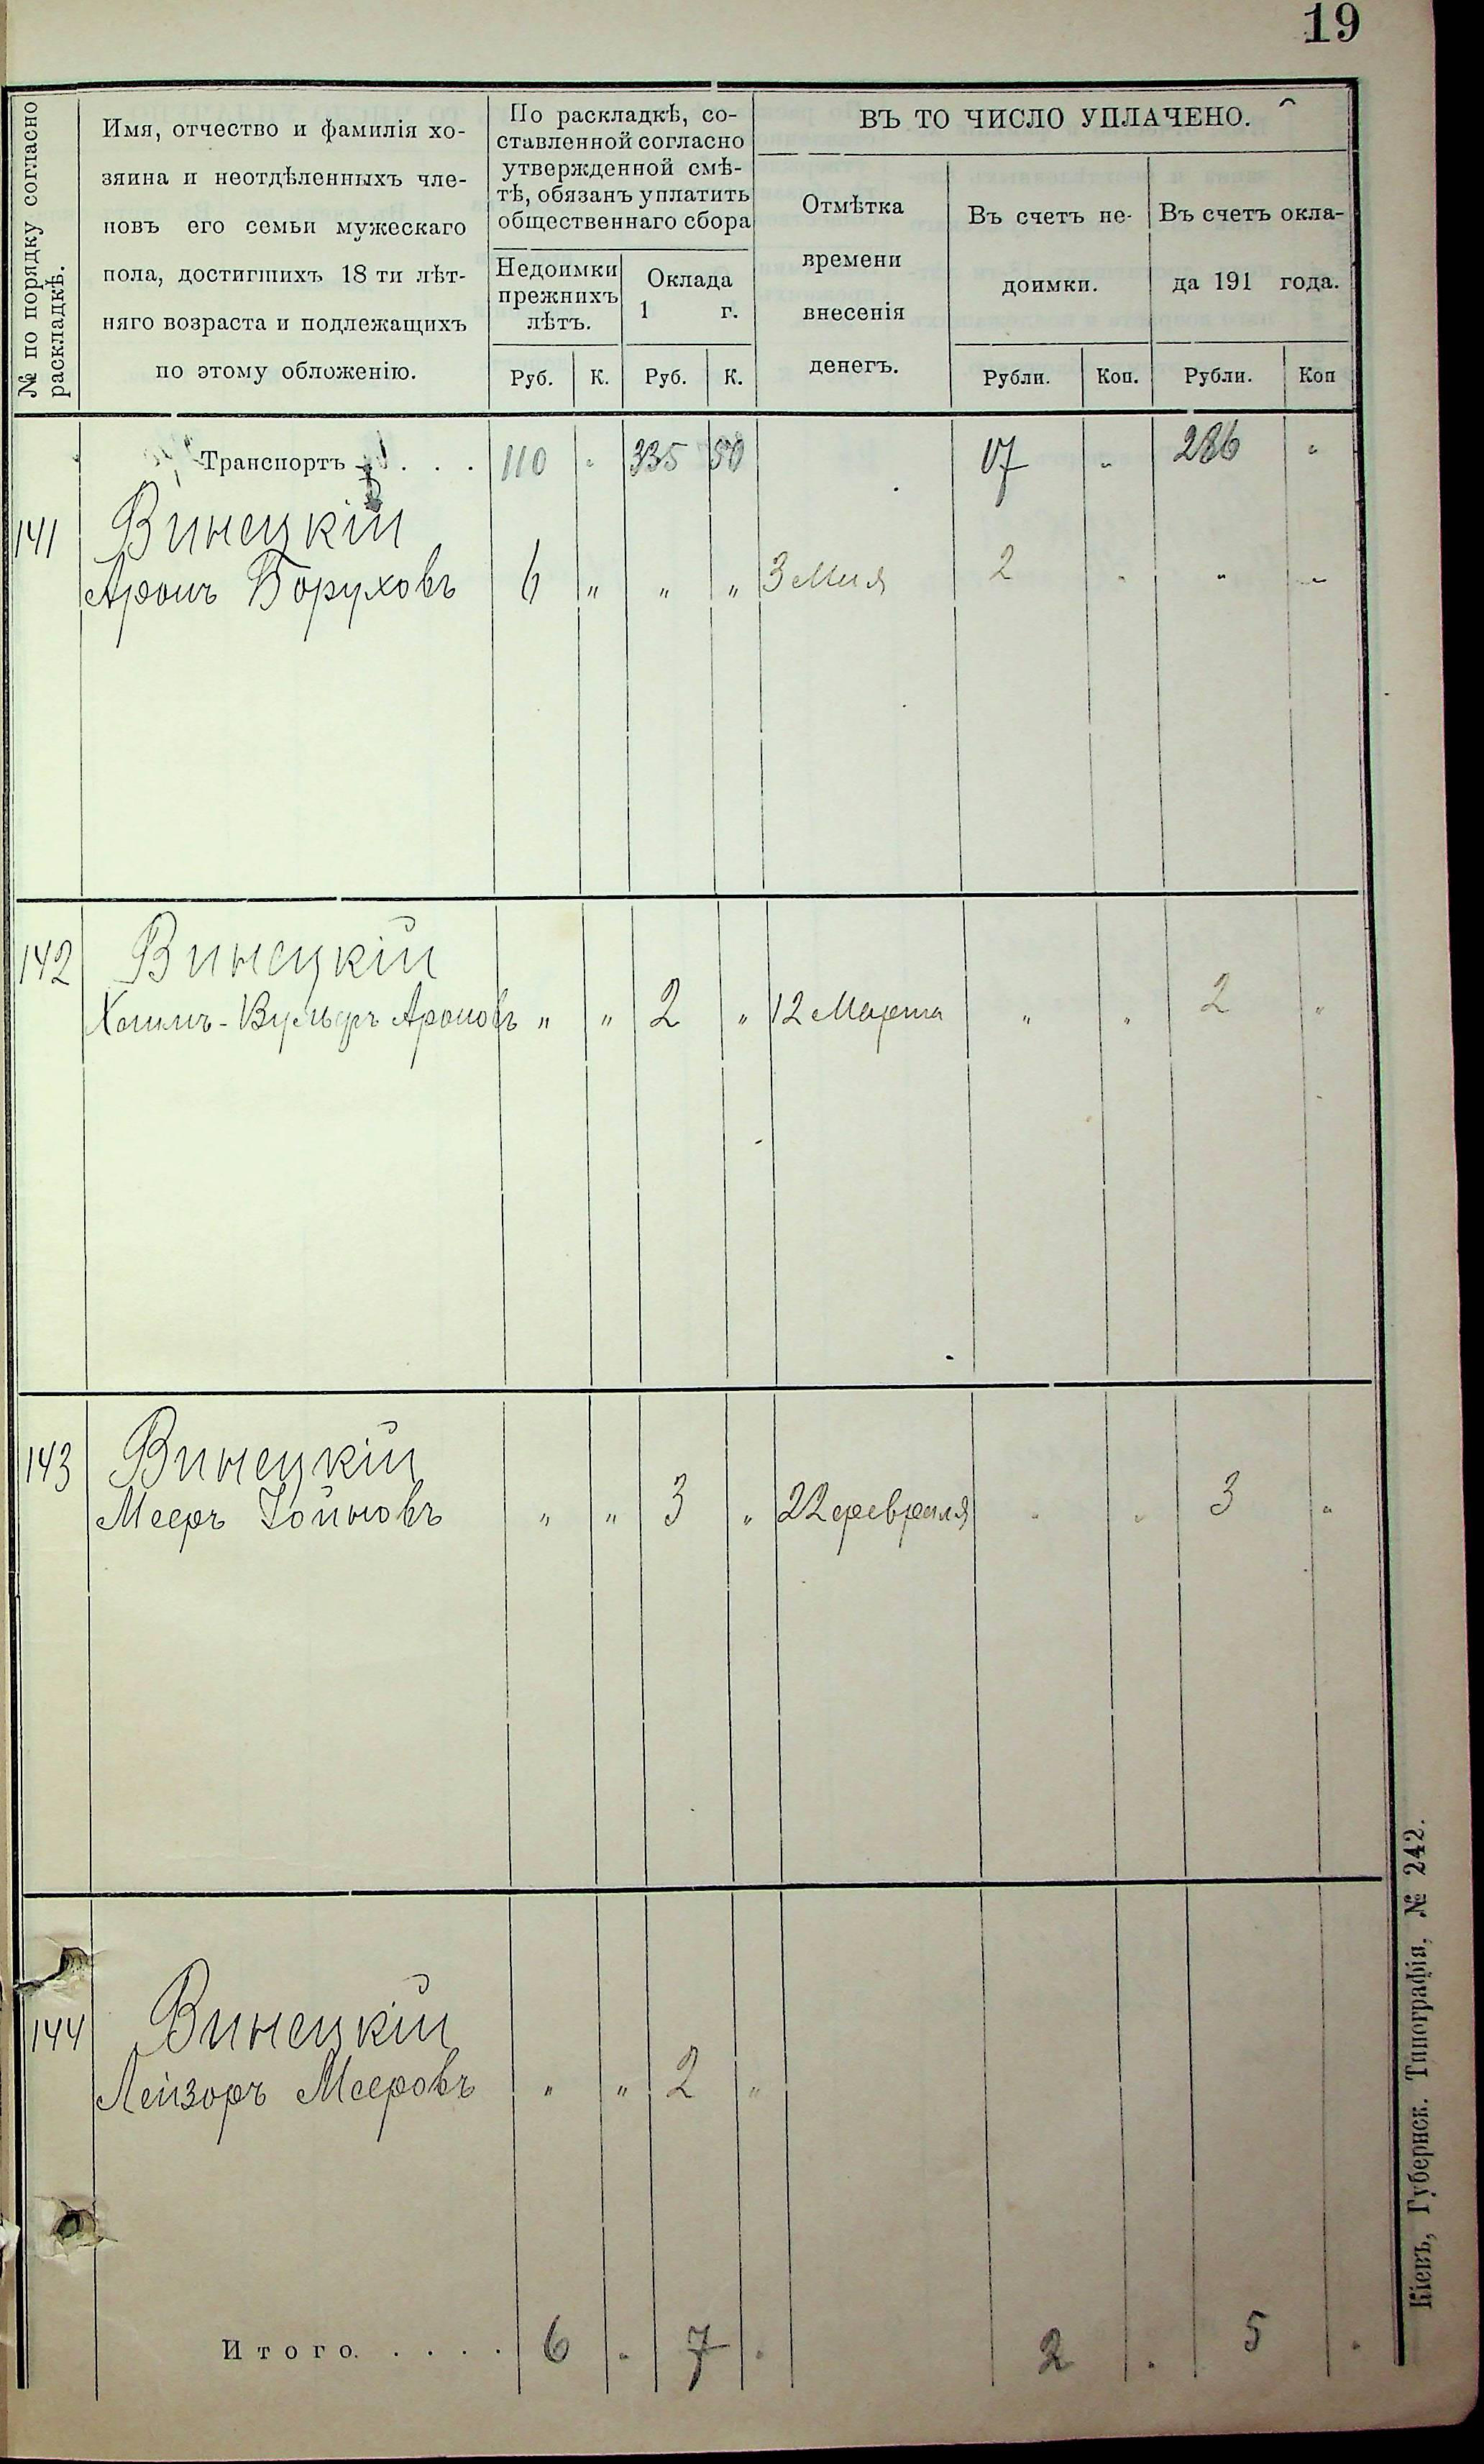 19
№ по порядку согласно
раскладкѣ.
Имя, отчество и фамилія хо-
зяина и неотдѣленныхъ чле-
новъ его семьи мужескаго
пола, достигшихъ 18 ти лѣт-
няго возраста и подлежащихъ
по этому обложенію.
По раскладкѣ, со-
ставленной согласно
утвержденной смѣ-
тѣ, обязанъ уплатить
общественнаго сбора
Недоимки
прежнихъ
лѣтъ.
Оклада
1 г.
ВЪ ТО ЧИСЛО УПЛАЧЕНО.
Отмѣтка
времени
внесенія
денегъ.
Въ счетъ не-
доимки.
Въ счетъ окла-
да 191 года.
Руб. К. Руб. К. Рубли. Коп. Рубли. Коп
Транспортъ . . . 110 " 335 50 17 " 286 "
141 Винецкій
Аронъ Боруховъ 6 " " " 3 Мая 2 " " "
142 Винецкій
Хаимъ-Вульфъ Ароновъ " " 2 " 12 Марта " " 2 "
143 Винецкій
Мееръ Іойновъ " " 3 " 22 февраля " " 3 "
144 Винецкій
Лейзоръ Мееровъ " " 2 "
Итого. . . . . 6 . 7 . 2 . 5 .
Кіевъ, Губернск. Типографія, № 242.